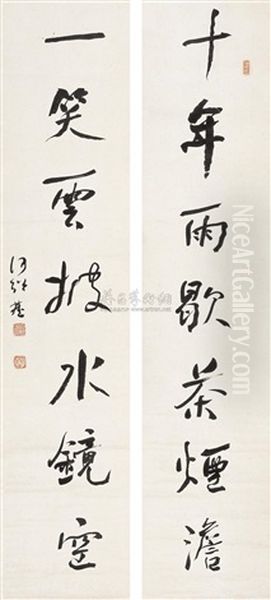 十年雨歇茶煙澹
一笑雲披水鏡空
何紹基
NiceArtGallery.com